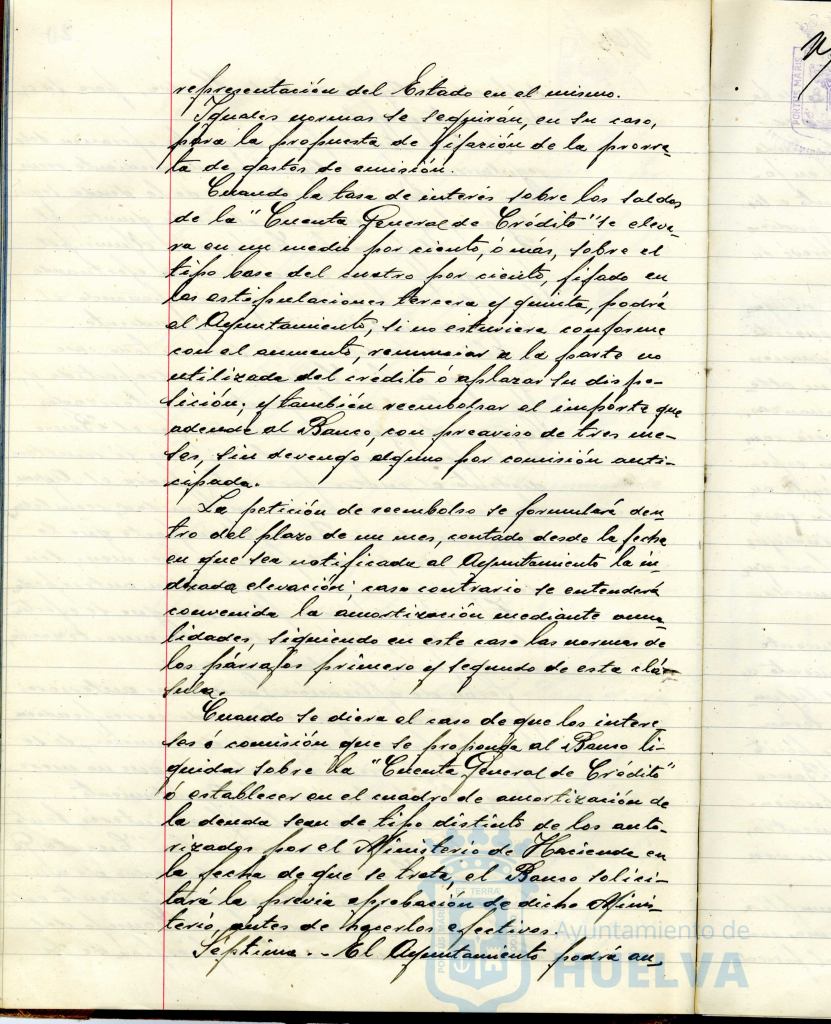 representación del Estado en el mismo.
Iguales normas se seguirán, en su caso,
para la propuesta de fijación de la prorra-
ta de gastos de emisión.
Cuando la tasa de interés sobre los saldos
de la "Cuenta General de Crédito" se eleva-
ra en un medio por ciento, ó más, sobre el
tipo base del cuatro por ciento, fijado en
las estipulaciones tercera y quinta, podrá
el Ayuntamiento, si no estuviera conforme
con el aumento, renunciar a la parte no
utilizada del crédito ó aplazar su dispo-
sición; y también reembolsar el importe que
adeude al Banco, con preaviso de tres me-
ses, sin devengo alguno por comisión anti-
cipada.
La petición de reembolso se formulará den
tro del plazo de un mes, contado desde la fecha
en que sea notificada al Ayuntamiento la in-
dicada elevación; caso contrario se entenderá
convenida la amortización mediante anua-
lidades, siguiendo en este caso las normas de
los párrafos primero y segundo de esta cláu-
sula.
Cuando se diera el caso de que los intere
ses ó comisión que se proponga al Banco li-
quidar sobre la "Cuenta General de Crédito"
ó establecer en el cuadro de amortización de
la deuda sean de tipo distinto de los auto-
rizados por el Ministerio de Hacienda en
la fecha de que se trata, el Banco solici-
tará la previa aprobación de dicho Minis-
terio, antes de hacerlos efectivos.
Séptima.- El Ayuntamiento podrá an-
Ayuntamiento de
HUELVA